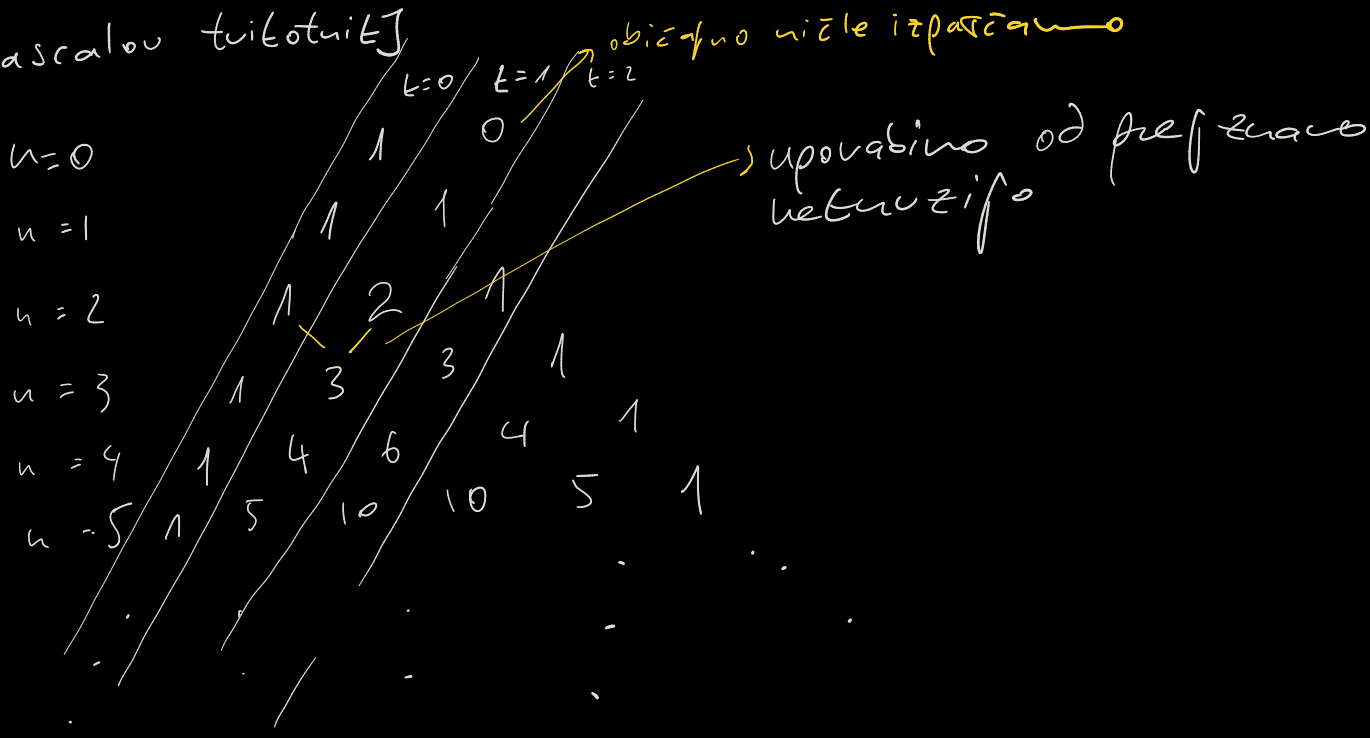 ascalov trikotnik
običajno ničle izpuščamo
t=0 t=1 t=2
n=0 1 0
uporabimo od prej znano
n=1 1 1
rekurzijo
n=2 1 2 1
n=3 1 3 3 1
n=4 1 4 6 4 1
n=5 1 5 10 10 5 1